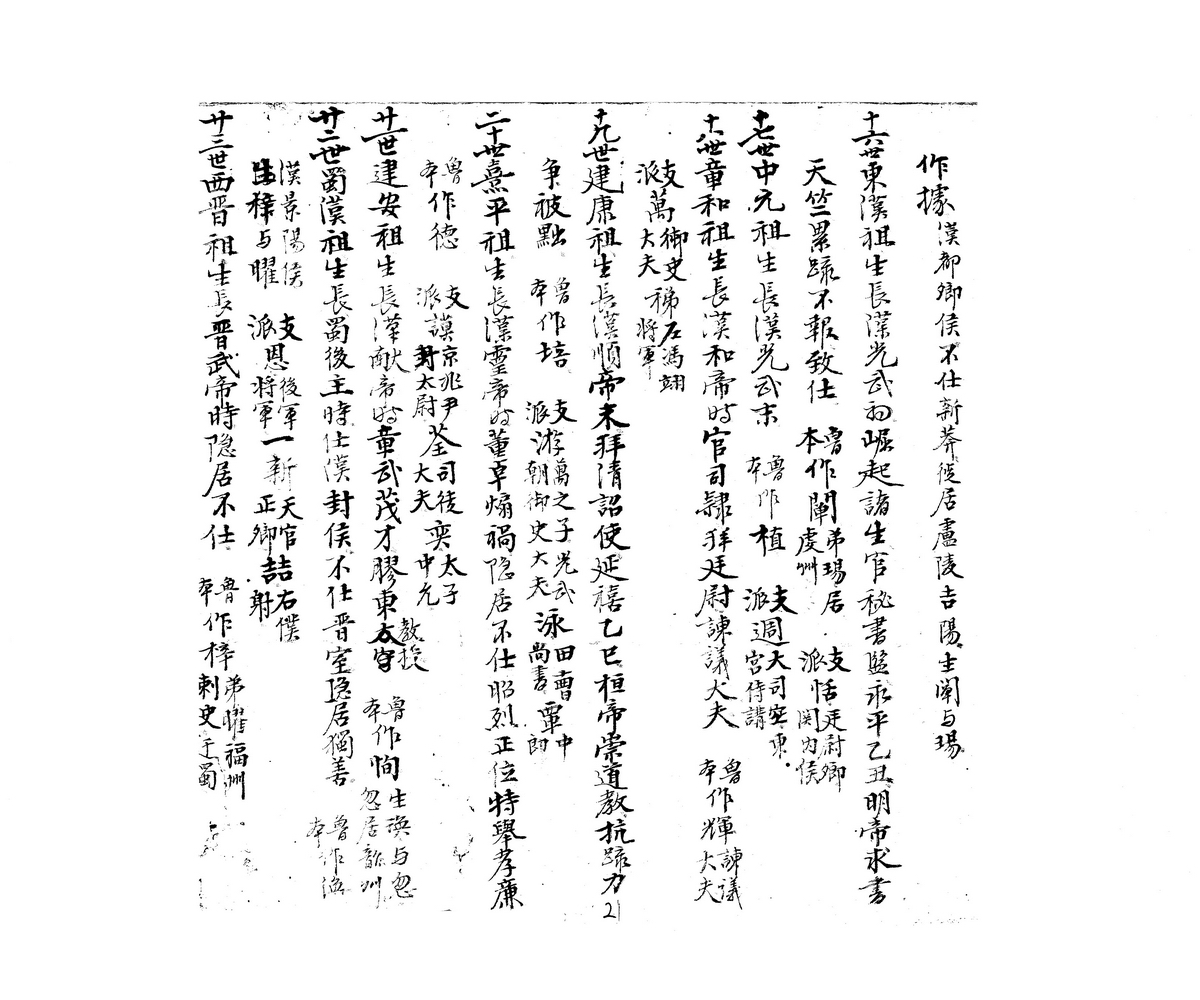 作據漢都鄉侯不仕新莽徙居盧陵吉陽生闡与瑒
十六世東漢祖生長漢光武初崛起諸生官秘書監永平乙丑明帝求書
天竺累䟽不報致仕 魯本作闡弟瑒居虔州 支派恬廷尉卿関内侯
十七世中元祖生長漢光武末 魯本作植 支派週大司空東宮侍講
十八世章和祖生長漢和帝時官司隸拜廷尉諫議大夫 魯本作輝諫議大夫
支派萬御史大夫稊左馮翊將軍
十九世建康祖生長漢順帝末拜隋詔使延禧乙巳桓帝崇道教抗䟽力
21
争被黜 魯本作培 支派游萬之子光武朝御史大夫泳田曹尚書覃中郎
二十世熹平祖生長漢靈帝時董卓煽禍隐居不仕昭烈正位特舉孝廉
魯本作德 支派謨京兆尹封太尉荃司徒大夫奕太子中允
廿一世建安祖生長漢献帝時章武茂才膠東教授太守 魯本作恂生瑛与忽忽居韶州
廿二世蜀漢祖生長蜀後主時仕漢封侯不仕晋室隐居獨善 魯本作
漢景陽侯生梓与曜 支派恩後軍將軍一新天官正卿喆右僕射
廿三世西晋祖生長晋武帝時隐居不仕 魯本作梓弟曜福州刺史于蜀